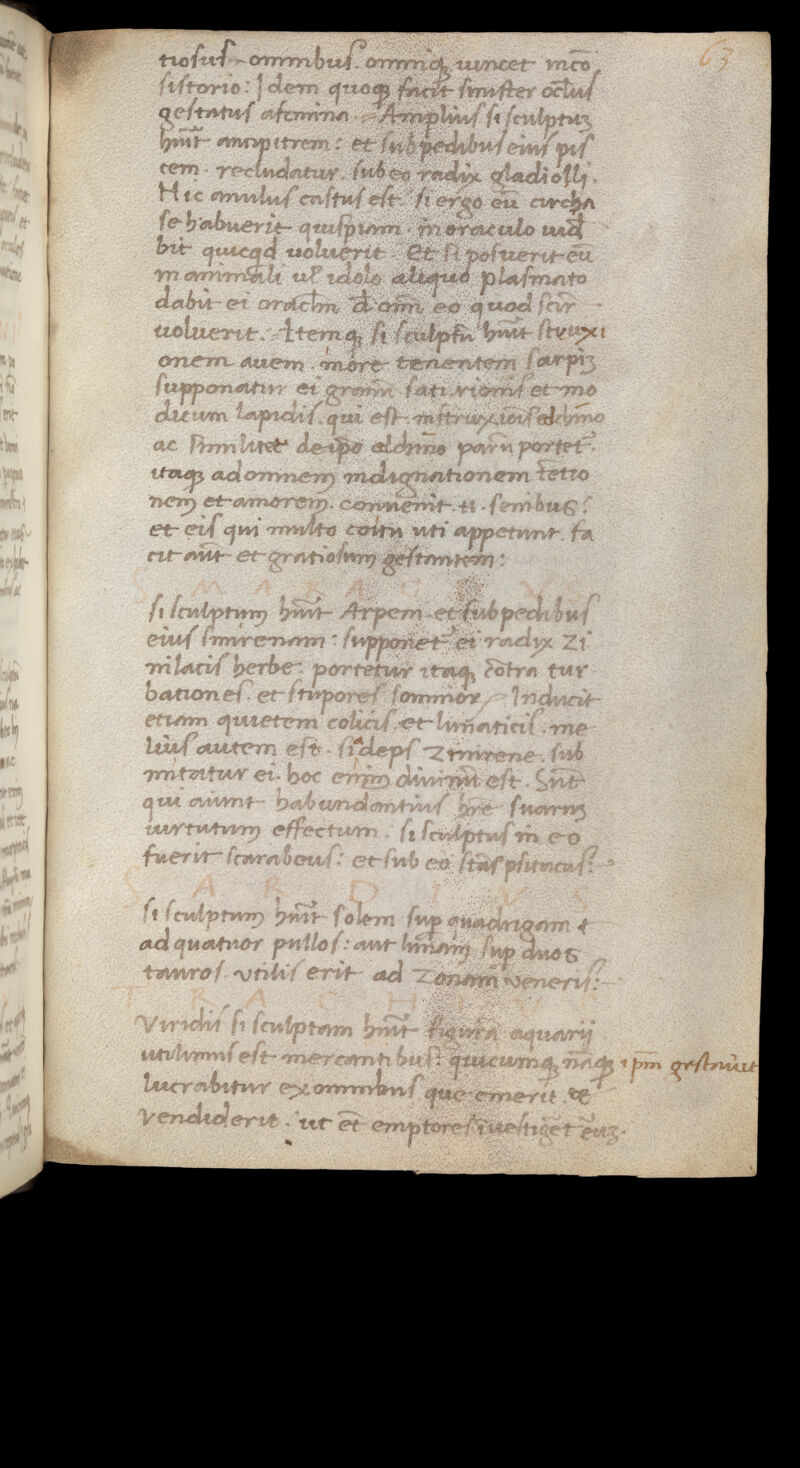 63
tiosus omnibus. omniq; vincet in cō
sistorio: Idem quoq; facit sinister oclus
gestatus a femina. Amplius si sculptuʒ
hūit ancipitrem: et sub pedibus eius pis
cem. recludatur. sub eo radix gladiolli.
Hic anulus castus est. si ergo eū circha
se habuerit quispiam. in oraculo uid
bit quicqd voluerit. Et si posuerit eū
in animali ul idolo aliquo plasmato
dabit ei oraclm d om̄ eo quod scir
voluerit. Itemq; si sculptū hūit struxi
onem avem. in ore tenentem
supponatur ei granū satirionis et mo
dicum lapidis. qui est in struxiōis eldhino
ac similiter de ipo eldhino parū portet.
itaq; ad omnem indignationem
nem et amorem. convenit senibus:
et eis qui multo coitu uti appetunt. fa
cit aūt et gratiosum gestantem:
S M A R A G D V S
si sculptum hūit Arpem et sub pedibus
eius smirenam: supponet ei radix zi
nilacis herbe. portetur itaq; cōtra tur
bationes. et stupores somnior Inducit
etiam quietem colicis et lunaticis. me
lius autem est. si adeps zmirene. sub
mitatur ei. hoc enim divinū est. Sūt
qui aiunt habundantius hre suarum
virtutum effectum. si sculptus in eo
fuerit scarabeus: et sub eo stās psitacus:
S A R D I V S
si sculptum hūit solem sup quadrigam et
ad quatuor pullos: aut lunam sup duos
tauros. vtilis erit ad zonam veneris:
T R A C H I V
Viridis si sculptam hūit figurā aquarij
utilimus est mercantibus: quicumq; nāq; ipm gestauīt
lucrabitur ex omnibus que emerit. et
vendiderit. ut et emptores īvestiget euʒ.